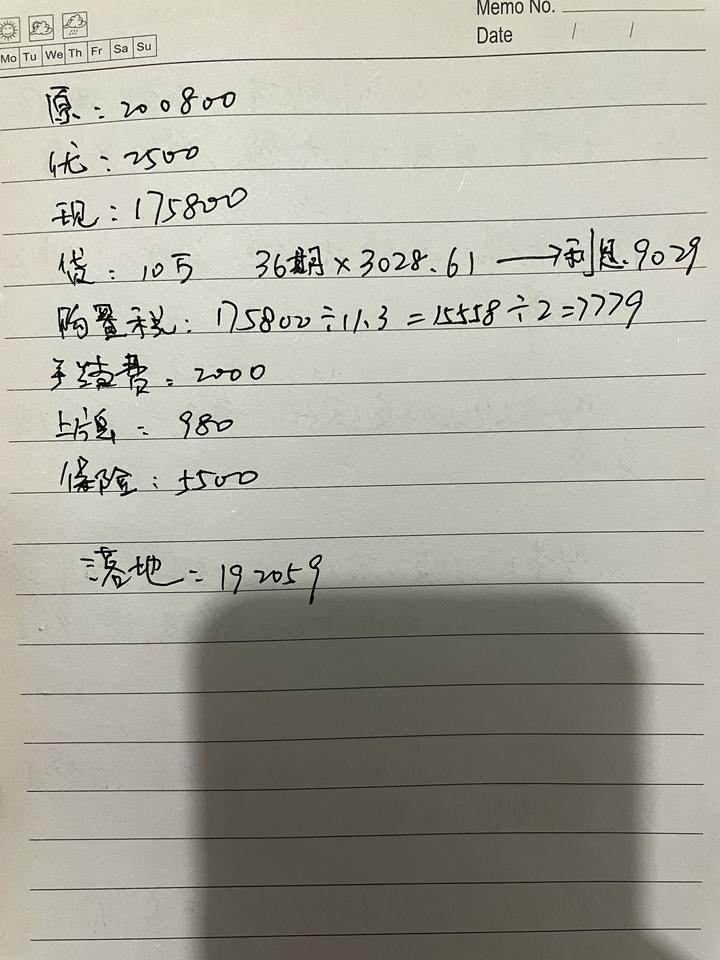 Memo No.
Date / /
Mo Tu We Th Fr Sa Su
原：200800
优：2500
现：175800
贷：10万 36期×3028.61 →利息.9029
购置税：175800÷11.3=15558÷2=7779
手续费：2000
上牌：980
保险：5500
落地：192059